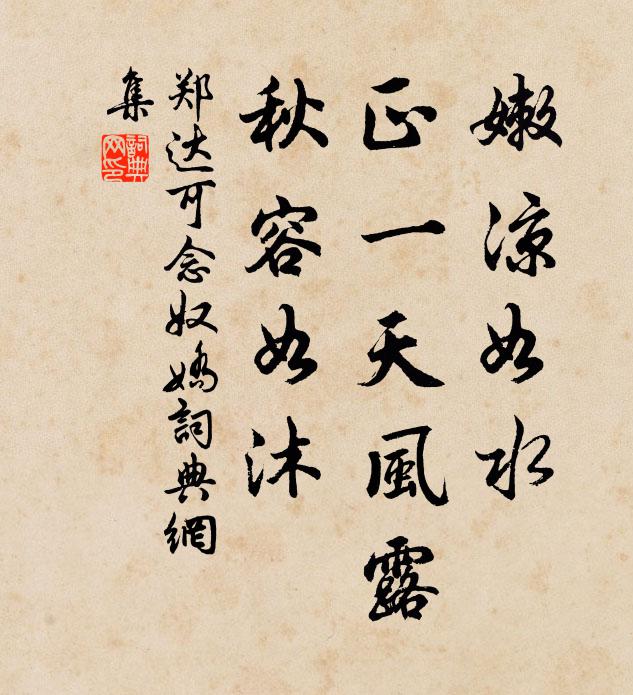 嫩凉如水
正一天風露
秋容如沐
郑达可念奴嬌詞典網
集
詞典
网印